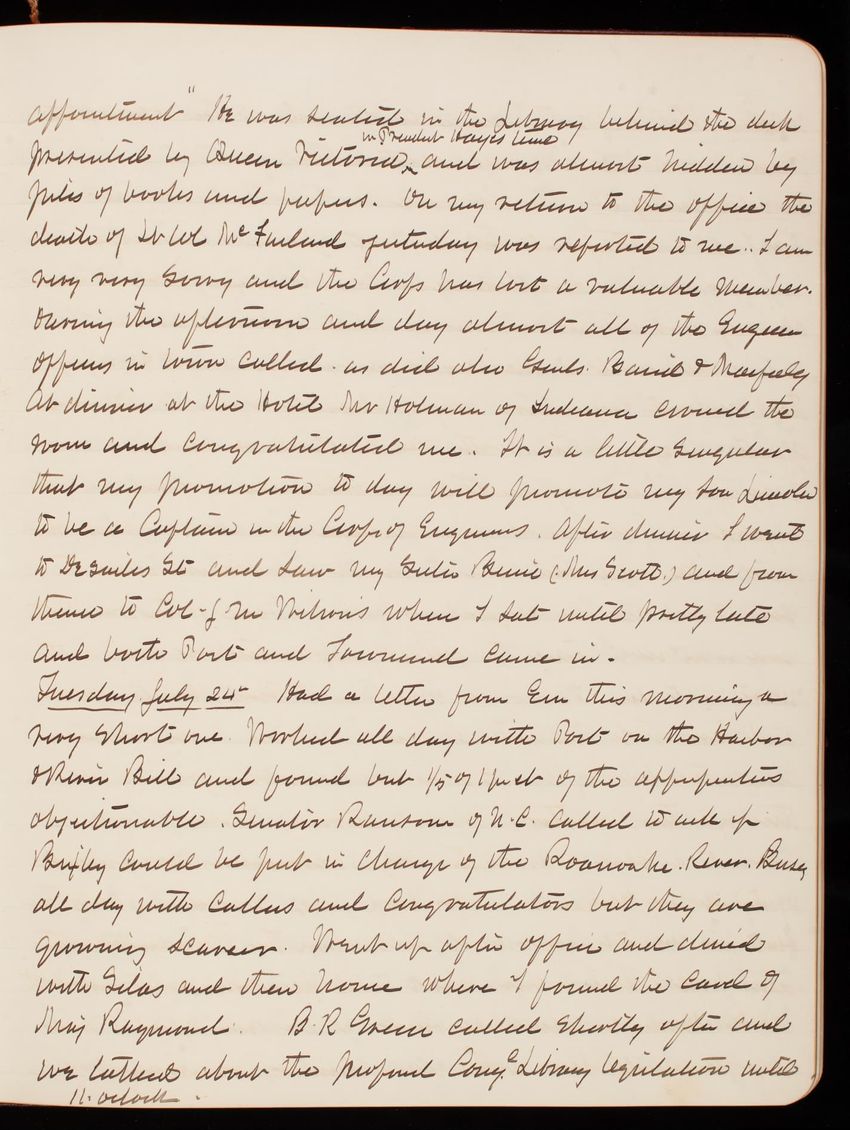 appointment" He was seated in the Library behind the desk
in President Hayes time
presented by Queen Victoria, and was almost hidden by
piles of books and papers. On my return to the office the
death of Lt Col McFarland yesterday was reported to me. I am
very very sorry and the Corps has lost a valuable member.
During the afternoon and day almost all of the Engineer
officers in town called. as did also Genls. Baird & Macfeely
At dinner at the Hotel Mr Holman of Indiana crossed the
room and congratulated me. It is a little singular
that my promotion to day will promote my son Lincoln
to be a Captain in the Corps of Engineers. After dinner I went
to DeSales St and saw my Sister Bessie (Mrs Scott.) and from
thence to Col. J M Wilson's where I sat until pretty late
and both Post and Townsend came in.
Tuesday July 24th Had a letter from Em this morning a
very short one. Worked all day with Post on the Harbor
& River Bill and found but 1/5 of 1 pr ct of the appropriations
objectionable. Senator Ransom of N.C. called to ask if
Bixby could be put in charge of the Roanoake River. Busy
all day with callers and congratulators but they are
growing scarcer. Went up after office and dined
with Silas and then home where I found the card of
Maj Raymond. B. R Green called shortly after and
we talked about the proposed Congl Library legislation until
11. oclock.